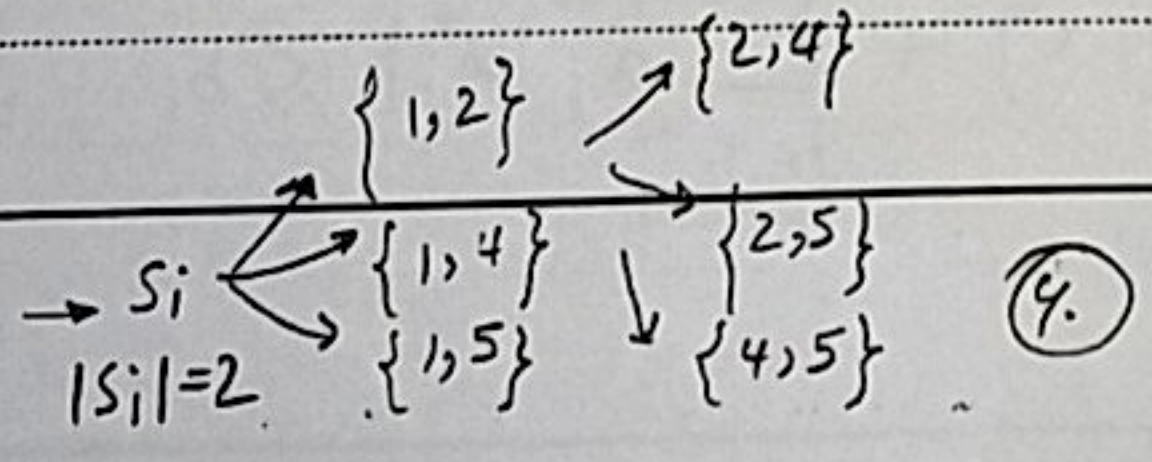 {1,2} ↗ {2,4}
→ Si → {1,4} → {2,5}
|Si|=2. {1,5} ↘ {4,5}